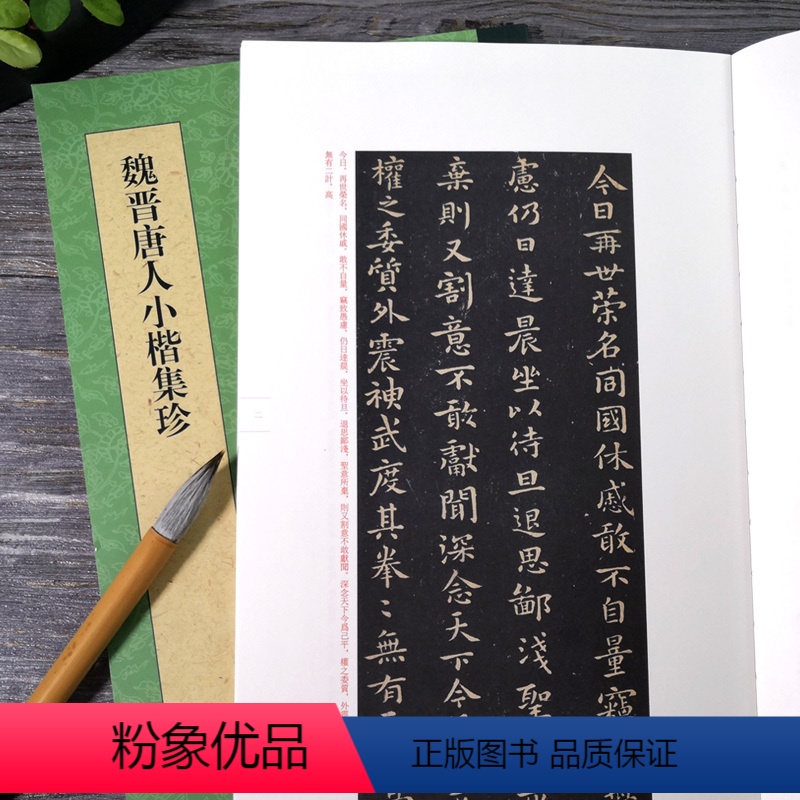 魏晋唐人小楷集珍
今日再世荣名同國休慼敢不自量竊
慮仍日達晨坐以待旦退思鄙淺聖
棄則又割意不敢獻聞深念天下今
權之委質外震神武度其拳〻無有
今日，再世榮名，同國休戚，敢不自量，竊致愚慮，仍日達晨，坐以待旦，退思鄙淺，聖意所棄，則又割意不敢獻聞，深念天下今爲已平，權之委質，外震
無有二計，高
二
粉象优品
正版图书 品质保证